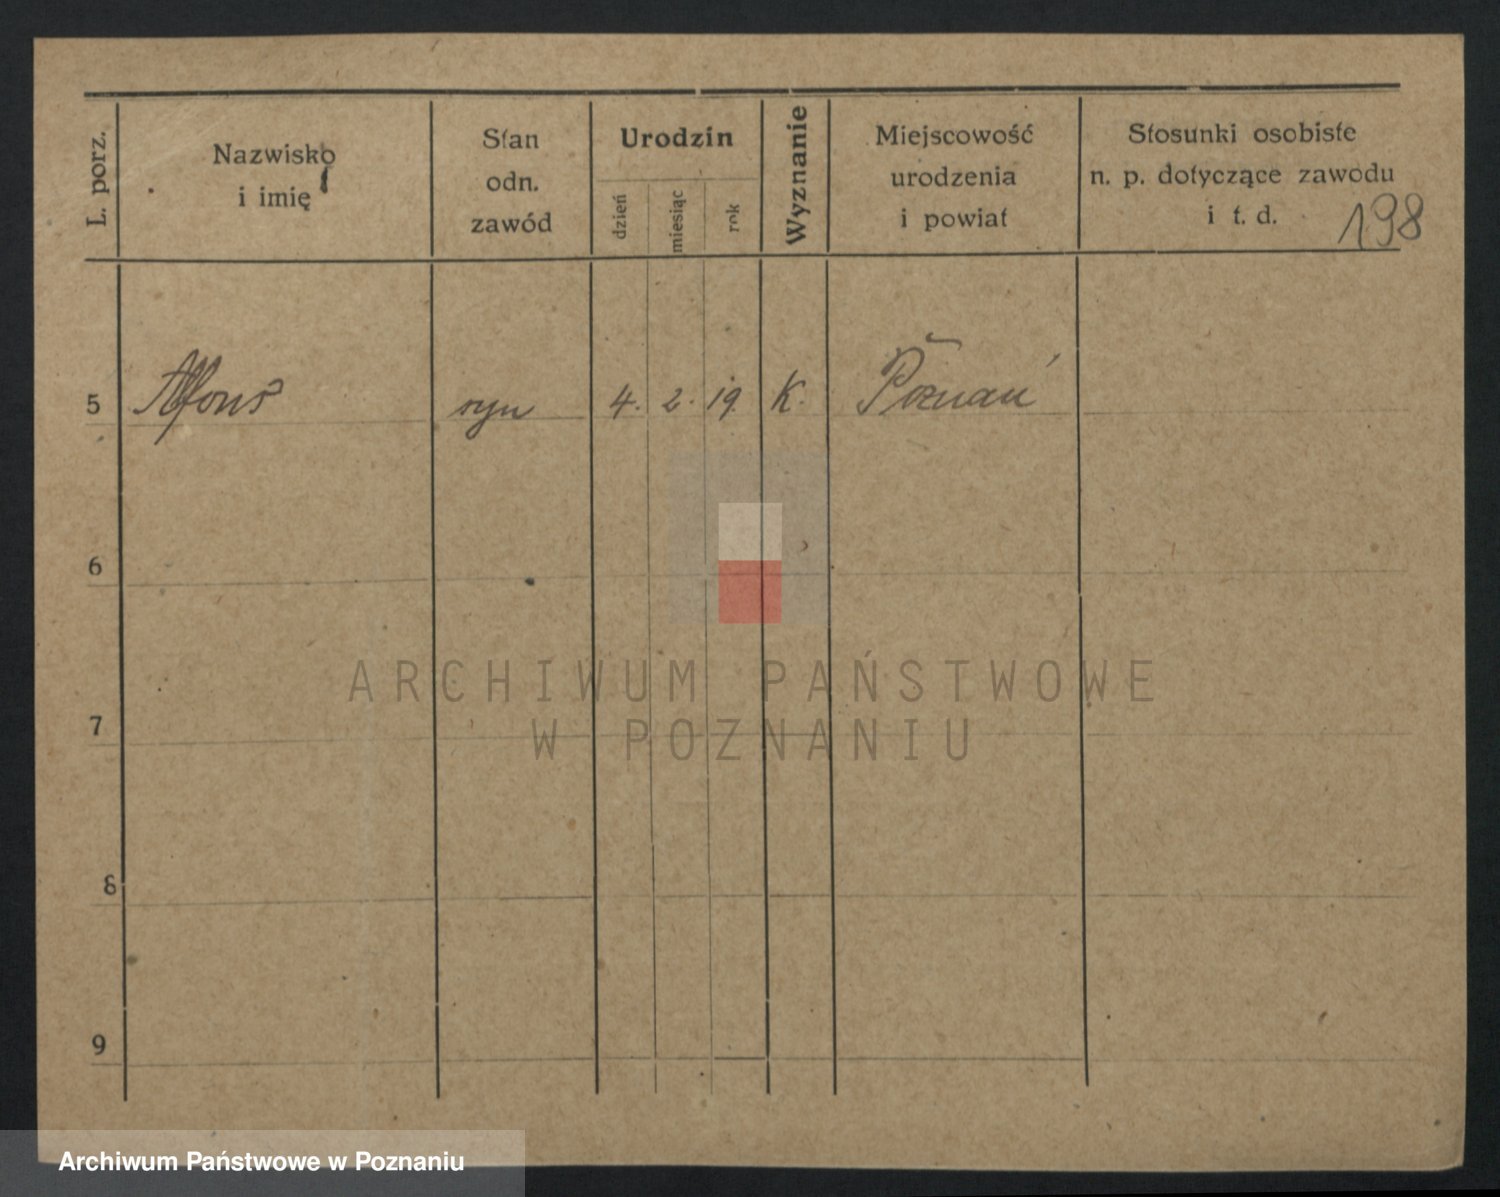 L. porz.
Nazwisko
i imię
Stan
odn.
zawód
Urodzin
dzień
miesiąc
rok
Wyznanie
Miejscowość
urodzenia
i powiat
Stosunki osobiste
n. p. dotyczące zawodu
i t. d.
198
5 Alfons syn 4. 2. 19. K. Poznań
6
7
8
9
ARCHIWUM PAŃSTWOWE
W POZNANIU
Archiwum Państwowe w Poznaniu